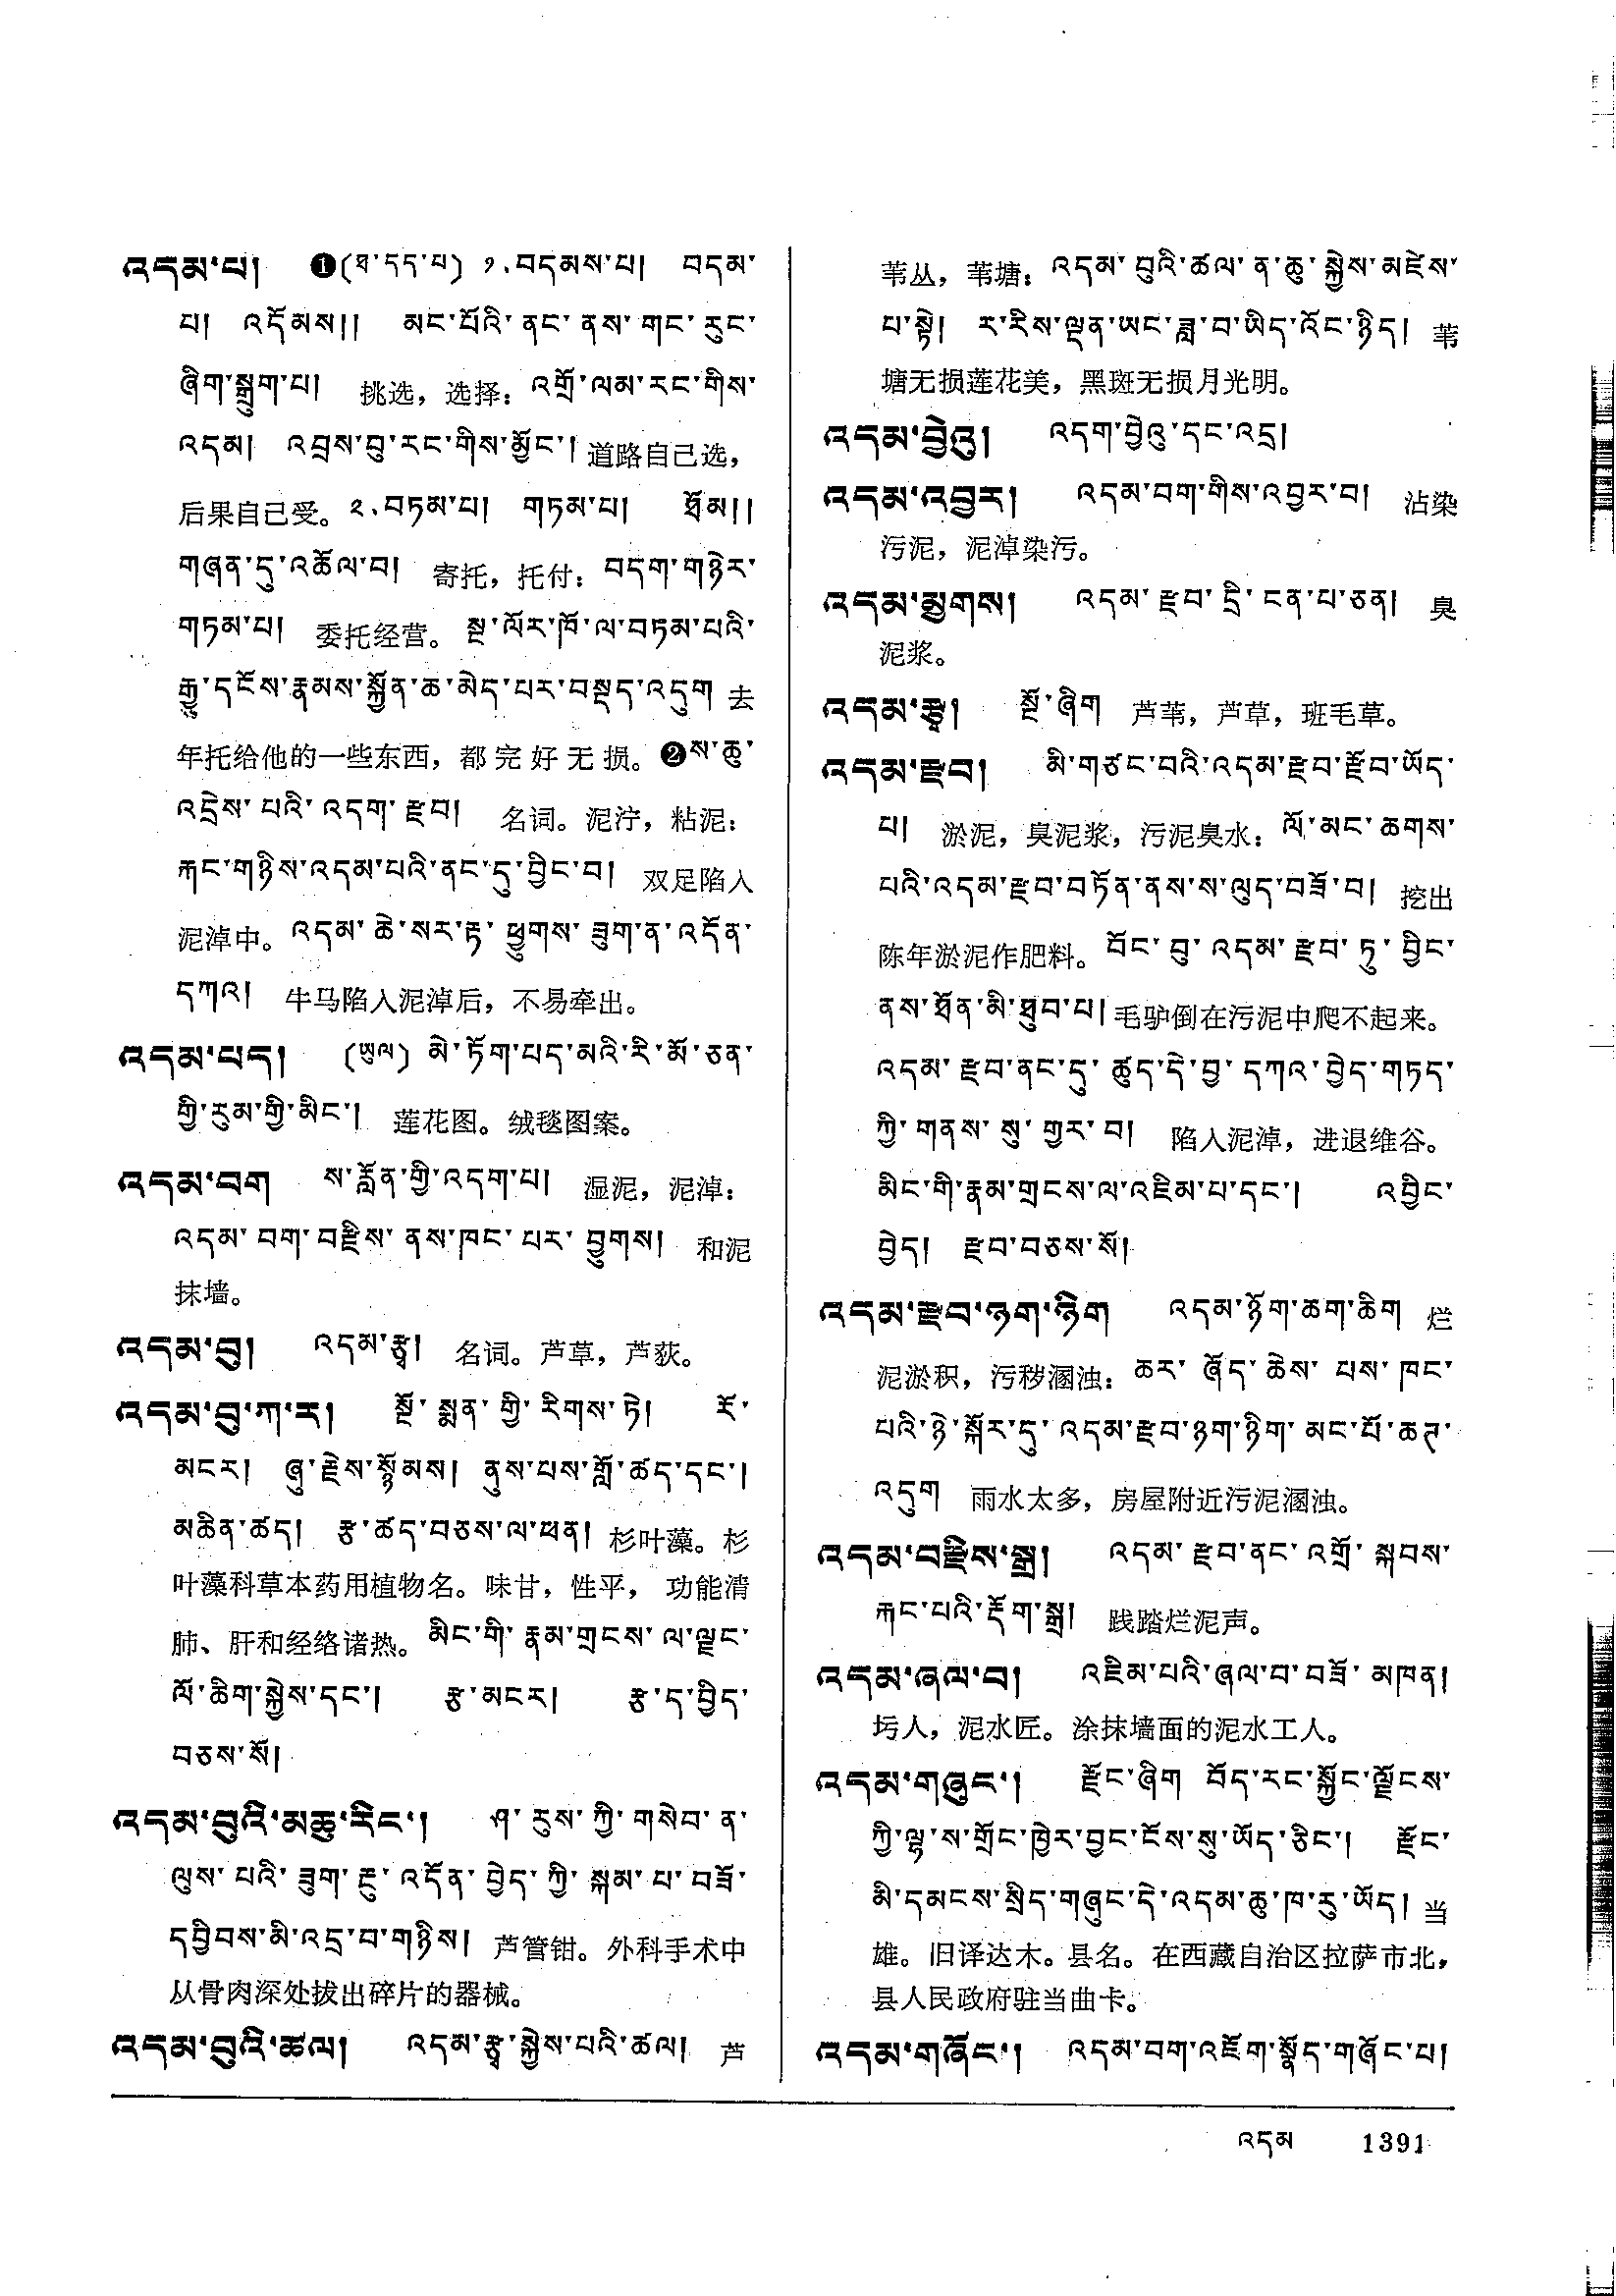 འདམ་པ། ❶(ཐ་དད་པ) ༡.བདམས་པ། བདམ་
པ། འདོམས།། མང་པོའི་ནང་ནས་གང་རུང་
ཞིག་སྒྲུག་པ། 挑选，选择：འགྲོ་ལམ་རང་གིས་
འདམ། འབྲས་བུ་རང་གིས་མྱོང་། 道路自己选，
后果自己受。༢.བཏམ་པ། གཏམ་པ། ཐོམ།།
གཞན་དུ་འཆོལ་བ། 寄托，托付：བདག་གཉེར་
གཏམ་པ། 委托经营。སྔ་ལོར་ཁོ་ལ་བཏམ་པའི་
རྒྱུ་དངོས་རྣམས་སྐྱོན་ཆ་མེད་པར་བསྡད་འདུག 去
年托给他的一些东西，都完好无损。❷ས་ཆུ་
འདྲེས་པའི་འདག་རྫབ། 名词。泥泞，粘泥：
རྐང་གཉིས་འདམ་པའི་ནང་དུ་བྱིང་བ། 双足陷入
泥淖中。འདམ་ཆེ་སར་རྟ་ཕྱུགས་ཟུག་ན་འདོན་
དཀའ། 牛马陷入泥淖后，不易牵出。
འདམ་པད། (ཡུལ) མེ་ཏོག་པད་མའི་རི་མོ་ཅན་
གྱི་རུམ་གྱི་མིང་། 莲花图。绒毯图案。
འདམ་བག ས་རློན་གྱི་འདག་པ། 湿泥，泥淖：
འདམ་བག་བརྫིས་ནས་ཁང་པར་བྱུགས། 和泥
抹墙。
འདམ་བུ། འདམ་རྩྭ། 名词。芦草，芦荻。
འདམ་བུ་ཀ་ར། སྔོ་སྨན་གྱི་རིགས་ཏེ། རོ་
མངར། ཞུ་རྗེས་སྙོམས། ནུས་པས་གློ་ཚད་དང་།
མཆིན་ཚད། རྩ་ཚད་བཅས་ལ་ཕན། 杉叶藻。杉
叶藻科草本药用植物名。味甘，性平，功能清
肺、肝和经络诸热。མིང་གི་རྣམ་གྲངས་ལ་ལྗང་
ལོ་ཆིག་སྐྱེས་དང་། རྩ་མངར། རྩ་ད་བྱིད་
བཅས་སོ།
འདམ་བུའི་མཆུ་རིང་། ཤ་རུས་ཀྱི་གསེབ་ན་
ལུས་པའི་ཟུག་རྔུ་འདོན་བྱེད་ཀྱི་སྐམ་པ་བཟོ་
དབྱིབས་མི་འདྲ་བ་གཉིས། 芦管钳。外科手术中
从骨肉深处拔出碎片的器械。
འདམ་བུའི་ཚལ། འདམ་རྩྭ་སྐྱེས་པའི་ཚལ། 芦
苇丛，苇塘：འདམ་བུའི་ཚལ་ན་ཆུ་སྐྱེས་མཛེས་
པ་སྟེ། ར་རིས་ལྡན་ཡང་ཟླ་བ་ཡིད་འོང་ཉིད། 苇
塘无损莲花美，黑斑无损月光明。
འདམ་བྱེའུ། འདག་བྱེའུ་དང་འདྲ།
འདམ་འབྱར། འདམ་བག་གིས་འབྱར་བ། 沾染
污泥，泥淖染污。
འདམ་མྱགས། འདམ་རྫབ་དྲི་ངན་པ་ཅན། 臭
泥浆。
འདམ་རྩྭ། སྔོ་ཞིག 芦苇，芦草，班毛草。
འདམ་རྫབ། མི་གཙང་བའི་འདམ་རྫབ་རྫོབ་ཡོད་
པ། 淤泥，臭泥浆，污泥臭水：ལོ་མང་ཆགས་
པའི་འདམ་རྫབ་བཏོན་ནས་ས་ལུད་བཟོ་བ། 挖出
陈年淤泥作肥料。བོང་བུ་འདམ་རྫབ་ཏུ་བྱིང་
ནས་ཐོན་མི་ཐུབ་པ། 毛驴倒在污泥中爬不起来。
འདམ་རྫབ་ནང་དུ་ཚུད་དེ་བྱ་དཀའ་བྱེད་གཏད་
ཀྱི་གནས་སུ་གྱུར་བ། 陷入泥淖，进退维谷。
མིང་གི་རྣམ་གྲངས་ལ་འཇིམ་པ་དང་། འབྱིང་
བྱེད། རྫབ་བཅས་སོ།
འདམ་རྫབ་ཉག་ཉིག འདམ་ཉོག་ཆག་ཆིག 烂
泥淤积，污秽溷浊：ཆར་ཞོད་ཆེས་པས་ཁང་
པའི་ཉེ་སྐོར་དུ་འདམ་རྫབ་ཉག་ཉིག་མང་པོ་ཆགས་
འདུག 雨水太多，房屋附近污泥溷浊。
འདམ་བརྫིས་སྒྲ། འདམ་རྫབ་ནང་འགྲོ་སྐབས་
རྐང་པའི་རྡོག་སྒྲ། 践踏烂泥声。
འདམ་ཞལ་བ། འཇིམ་པའི་ཞལ་བ་བཟོ་མཁན།
圬人，泥水匠。涂抹墙面的泥水工人。
འདམ་གཞུང་། རྫོང་ཞིག བོད་རང་སྐྱོང་ལྗོངས་
ཀྱི་ལྷ་ས་གྲོང་ཁྱེར་བྱང་ངོས་སུ་ཡོད་ཅིང་། རྫོང་
མི་དམངས་སྲིད་གཞུང་དེ་འདམ་ཆུ་ཁ་རུ་ཡོད། 当
雄。旧译达木。县名。在西藏自治区拉萨市北，
县人民政府驻当曲卡。
འདམ་གཞོང་། འདམ་བག་འཇོག་སྣོད་གཞོང་པ།
འདམ 1391